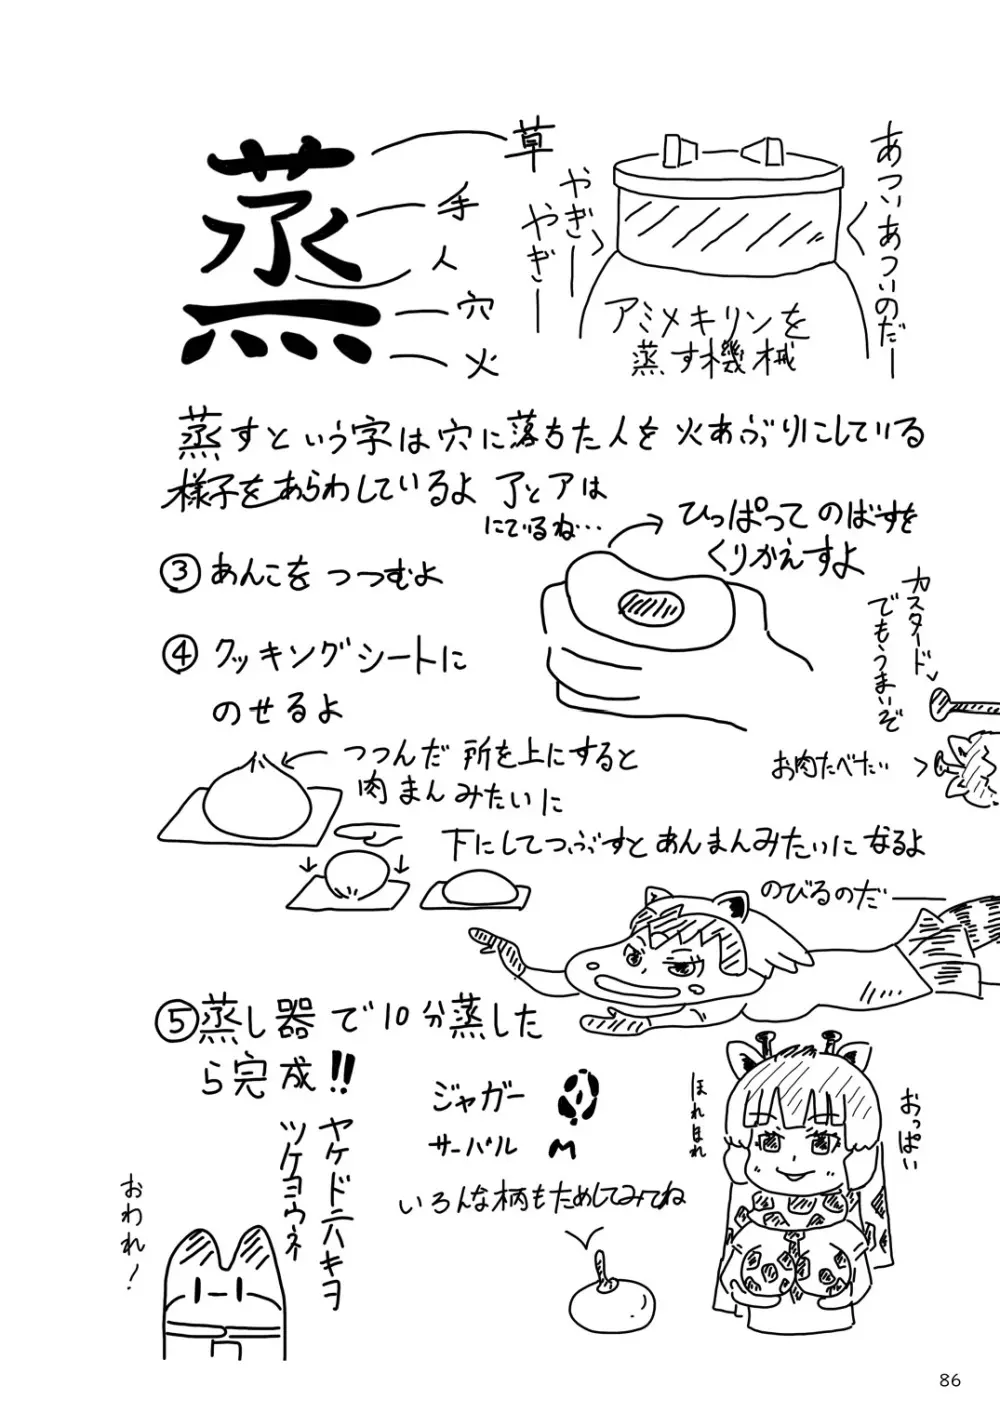 蒸
草
手
人
穴
火
やぎー
やぎー
あついあついのだー
アミメキリンを
蒸す機械
蒸すという字は穴に落ちた人を火あぶりにしている
様子をあらわしているよ 了とアは
にているね…
ひっぱってのばすを
くりかえすよ
③あんこをつつむよ
④クッキングシートに
のせるよ
カスタード
でもうまいぞ
お肉たべたい
つつんだ所を上にすると
肉まんみたいに
下にしてつぶすとあんまんみたいになるよ
のびるのだ——
⑤蒸し器で10分蒸した
ら完成!!
ジャガー
サーバル
いろんな柄もためしてみてね
ほれほれ
おっぱい
ヤケドニハキヲ
ツケヨウネ
おわれ!
86